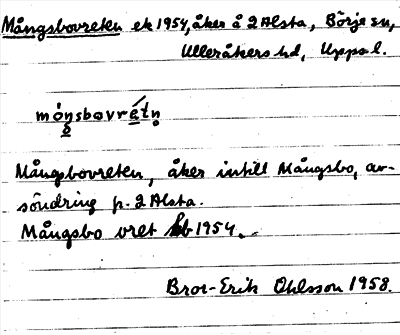 Mångsbovreten ek 1954, åker å 2 Alsta, Börje sn,
Ulleråkers hd, Uppsal.
móṇsbovrétṇ
Mångsbovreten, åker intill Mångsbo, av-
söndring p. 2 Alsta.
Mångsbo vret 1954.
Bror-Erik Ohlsson 1958.